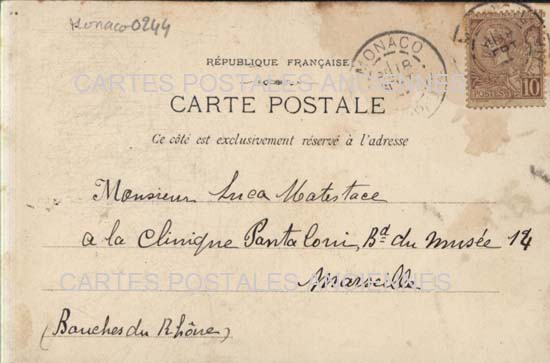 Monaco 0244
RÉPUBLIQUE FRANÇAISE
MONACO
CARTES POSTALES ANCIENNES
CARTE POSTALE
POSTES 10
Ce côté est exclusivement réservé à l'adresse
Monsieur Luca Matestace
a la Clinique Pantaloni, Bd du Musée 14
CARTES POSTALES ANCIENNES
Marseille
(Bouches du Rhône)